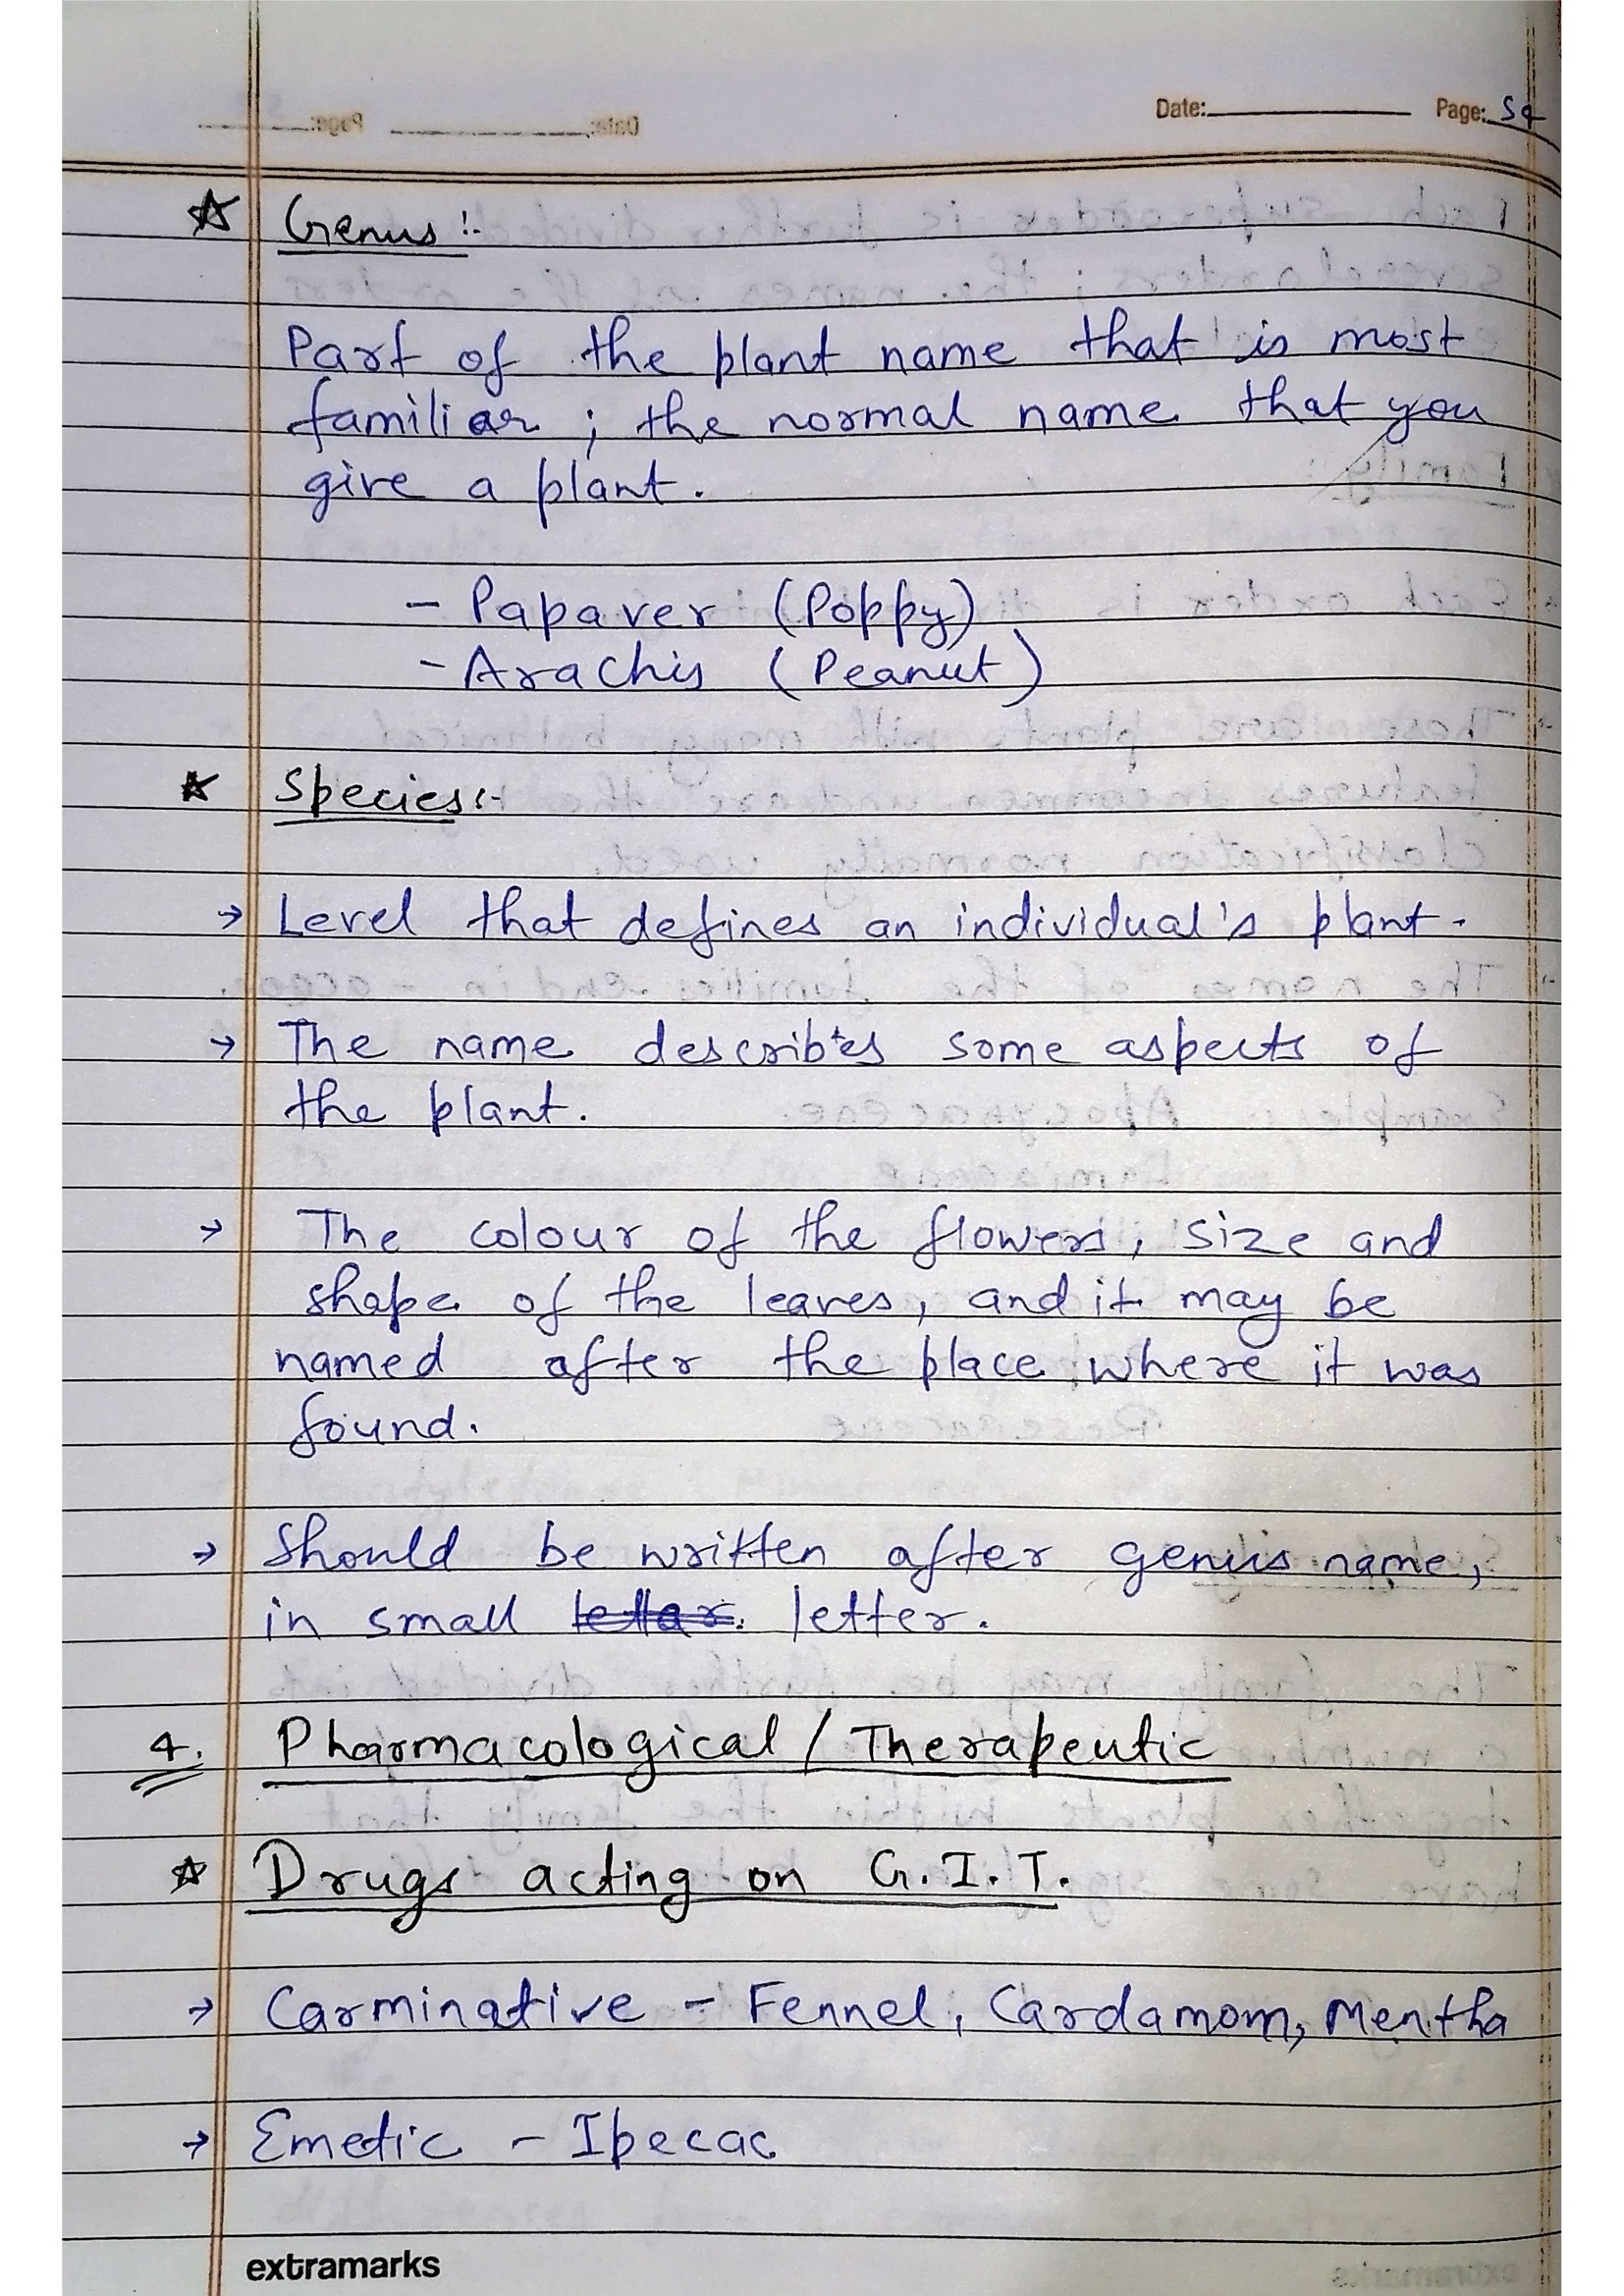 Date: Page: 59
☆ Genus :-
Part of the plant name that is most
familiar ; the normal name that you
give a plant.
- Papaver (Poppy)
- Arachis (Peanut)
☆ Species :-
→ Level that defines an individual's plant.
→ The name describes some aspects of
the plant.
→ The colour of the flowers, size and
shape of the leaves, and it may be
named after the place where it was
found.
→ Should be written after genus name,
in small letter.
4. Pharmacological / Therapeutic
☆ Drugs acting on G.I.T.
→ Carminative - Fennel, Cardamom, Mentha
→ Emetic - Ipecac
extramarks